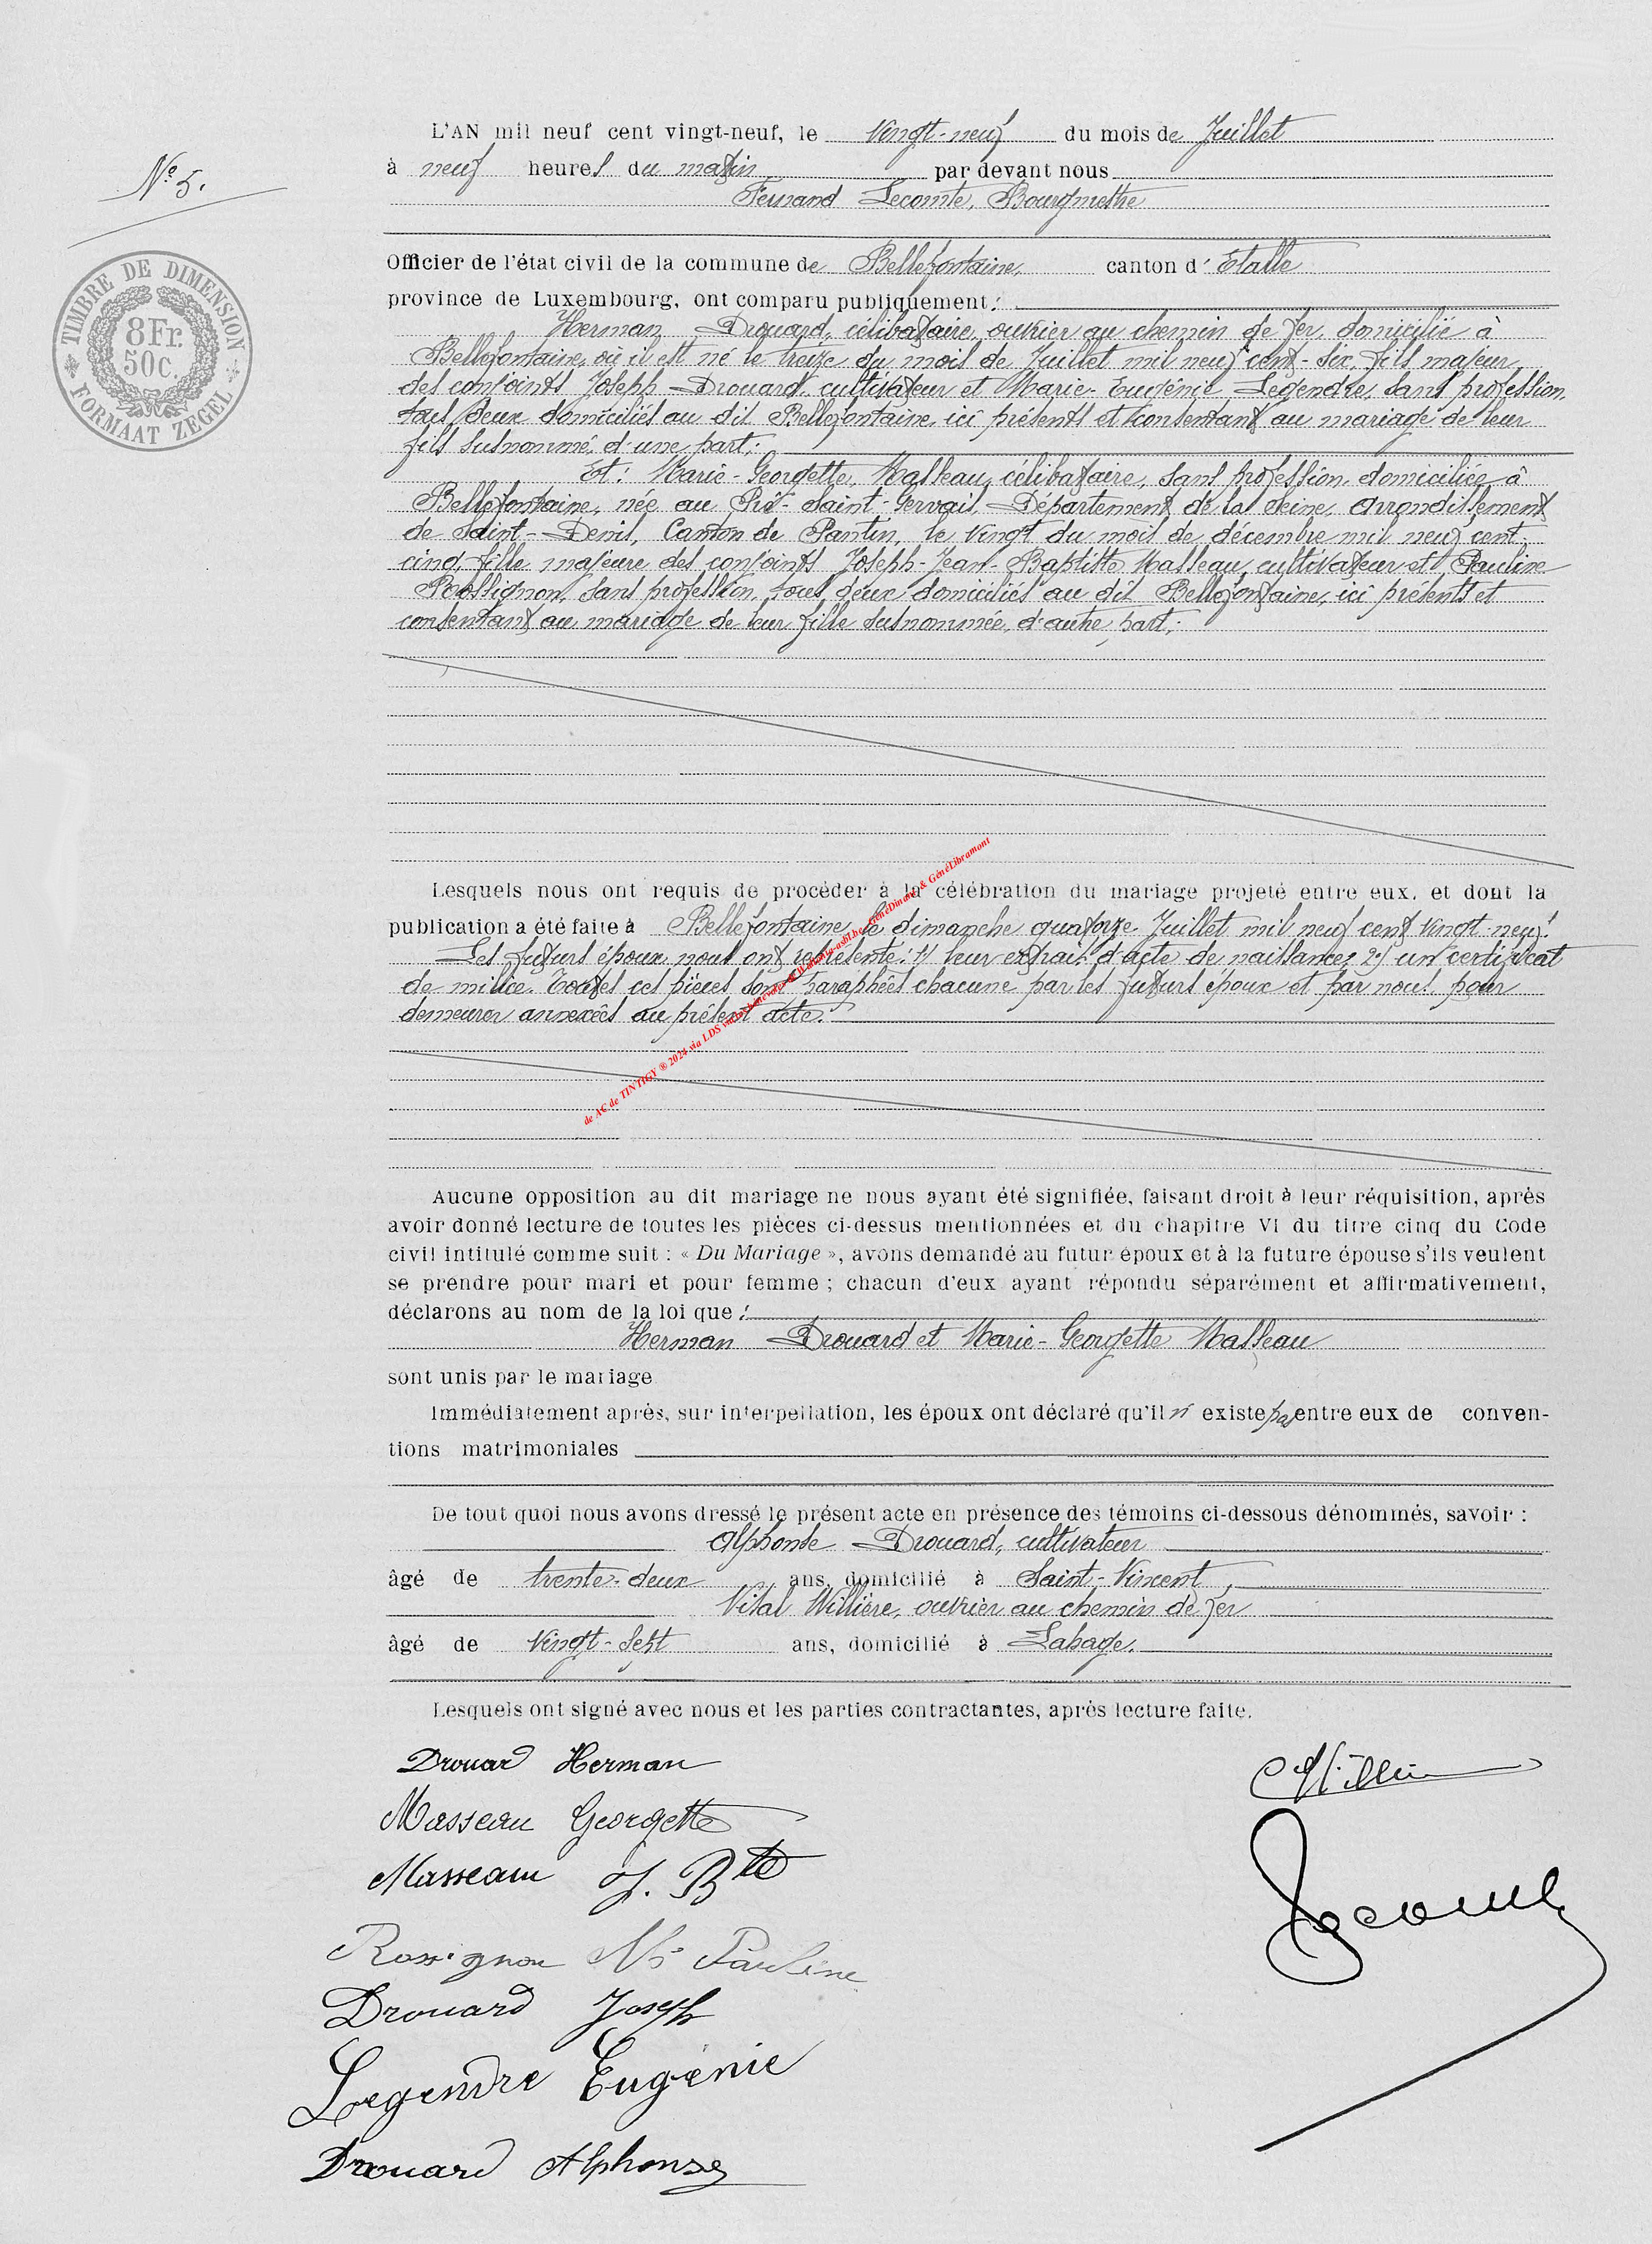 L'AN mil neuf cent vingt-neuf, le vingt-neuf du mois de Juillet
N° 5.
à neuf heures du matin par devant nous
Fernand Lecomte, Bourgmestre
Officier de l'état civil de la commune de Bellefontaine, canton d' Etalle
province de Luxembourg, ont comparu publiquement :
TIMBRE DE DIMENSION
8Fr.
50c.
FORMAAT ZEGEL
Herman Drouard, célibataire, ouvrier au chemin de fer, domicilié à
Bellefontaine, où il est né le treize du mois de Juillet mil neuf cent-six, fils majeur
des conjoints Joseph Drouard, cultivateur et Marie-Eugénie Legendre, sans profession,
tous deux domiciliés au dit Bellefontaine, ici présents et consentant au mariage de leur
fils susnommé, d'une part;
Et: Marie-Georgette, Masseau, célibataire, sans profession, domiciliée à
Bellefontaine, née au Pré-Saint-Gervais, Département de la Seine, arrondissement
de Saint-Denis, Canton de Pantin, le vingt du mois de décembre mil neuf cent
cinq, fille majeure des conjoints Joseph-Jean-Baptiste Masseau, cultivateur et Pauline
Rossignon, sans profession, tous deux domiciliés au dit Bellefontaine, ici présents et
consentant au mariage de leur fille susnommée, d'autre part;
Lesquels nous ont requis de procéder à la célébration du mariage projeté entre eux, et dont la
publication a été faite à Bellefontaine, le dimanche quatorze Juillet mil neuf cent vingt neuf.
Les futurs époux nous ont représenté: 1) leur extrait d'acte de naissance; 2) un certificat
de milice. Toutes ces pièces sont paraphées chacune par les futurs époux et par nous pour
demeurer annexées au présent acte.
de AC de TINTIGY ® 2024 via LDS GénéDinant & GénéLibramont
Aucune opposition au dit mariage ne nous ayant été signifiée, faisant droit à leur réquisition, après
avoir donné lecture de toutes les pièces ci-dessus mentionnées et du chapitre VI du titre cinq du Code
civil intitulé comme suit : « Du Mariage », avons demandé au futur époux et à la future épouse s'ils veulent
se prendre pour mari et pour femme ; chacun d'eux ayant répondu séparément et affirmativement,
déclarons au nom de la loi que :
Herman Drouard et Marie-Georgette Masseau
sont unis par le mariage
Immédiatement après, sur interpellation, les époux ont déclaré qu'il n' existe pas entre eux de conven-
tions matrimoniales
De tout quoi nous avons dressé le présent acte en présence des témoins ci-dessous dénommés, savoir :
Alphonse Drouard, cultivateur
âgé de trente-deux ans, domicilié à Saint-Vincent,
Vital Willière, ouvrier au chemin de fer
âgé de vingt-sept ans, domicilié à Lahage.
Lesquels ont signé avec nous et les parties contractantes, après lecture faite.
Drouard Herman
Masseau Georgette
Masseau J. Bte
Rossignon Mie Pauline
Drouard Joseph
Legendre Eugénie
Drouard Alphonse
Lecomte